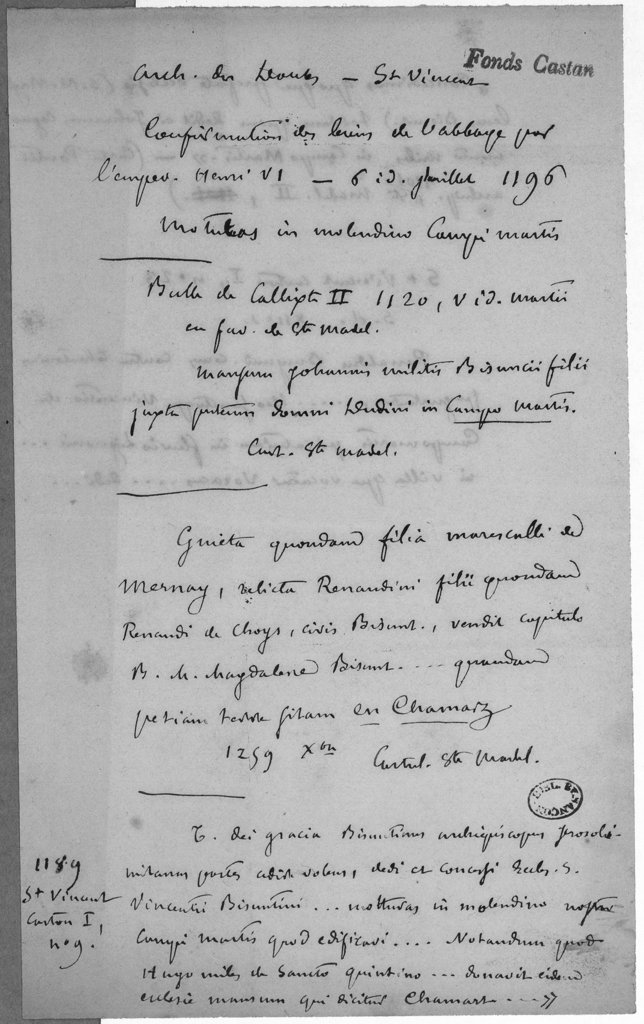 Fonds Castan
Arch. du Doubs — St Vincent
Confirmation des biens de l'abbaye par
l'emper. Henri VI — 6 id. juillet 1196
in molendino Campi martis
Bulle de Callixte II 1120, V id. martii
en fav. de Ste Madel.
mansum Johannis militis Bisuncii filii
juxta puteum domni in Campo Martis.
Cart. Ste Madel.
Guieta quondam filia marescalli de
Mernay, relicta Renaudini filii quondam
Renaudi de Choys, civis Bisunt., vendit capitulo
B. M. Magdalene Bisunt. .... quamdam
petiam terre sitam en Chamarz
1259 Xbre Cartul. Ste Madel.
BIBL. BESANÇON
1189
St Vincent
Carton I,
n° 9.
T. dei gracia Bisuntinus archiepiscopus Jerosoli-
mitanas partes, dedi et concessi Eccles. S.
Vincentii Bisuntini ... motturas in molendino nostro
Campi martis quod edificavi .... Notandum quod
Hugo miles de Sancto quintino ... donavit eidem
ecclesie mansum qui dicitur Chamarz ... »